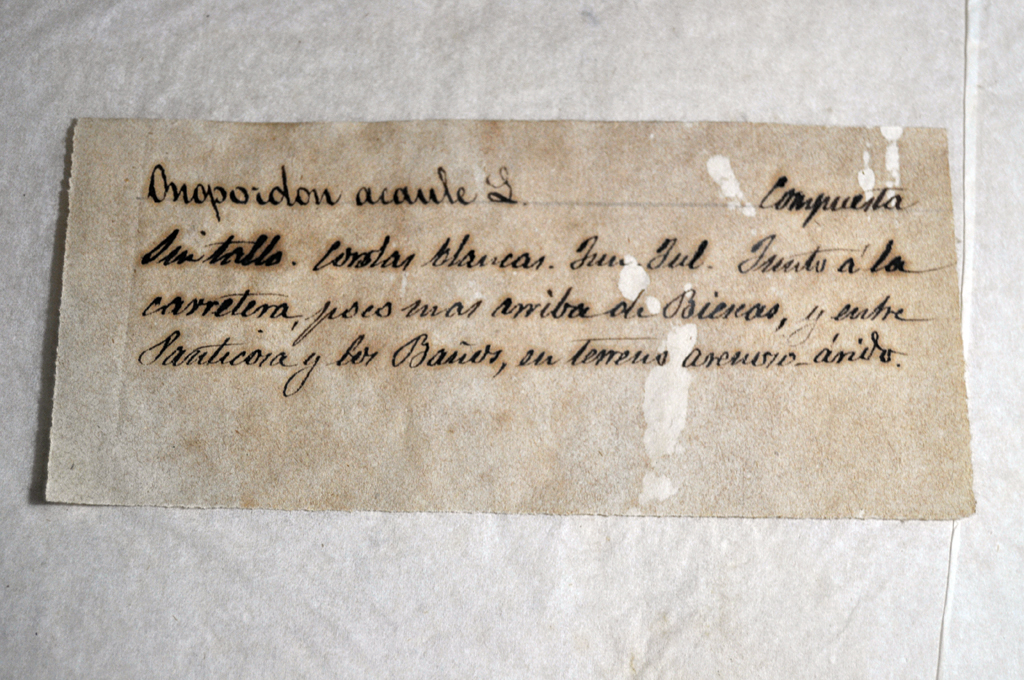 Onopordon acaule L. Compuesta
Sin tallo. Corolas blancas. Jun. Jul. Junto á la
carretera, poco mas arriba de Biescas, y entre
Panticosa y los Baños, en terreno arenoso-árido.